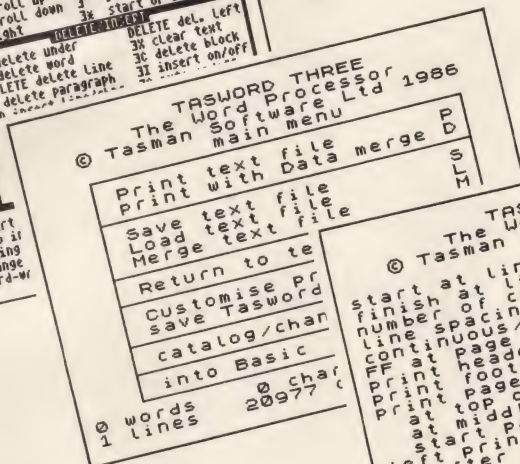 roll up
roll down
3X start of
DELETE/INSERT
delete under
DELETE del. left
delete word
3X clear text
delete line
3C delete block
delete paragraph
3I insert on/off
TASWORD THREE
The Word Processor
© Tasman Software Ltd 1986
main menu
Print text file P
Print with Data merge D
Save text file S
Load text file L
Merge text file M
Return to te
Customise Pr
save Tasword
catalog/chan
into Basic
0 words 0 char
1 lines 20977 c
TAS
The W
© Tasman
start at lin
finish at l
number of c
line spacin
continuous/
FF at page
print head
print foot
print page
at top
at midd
start p